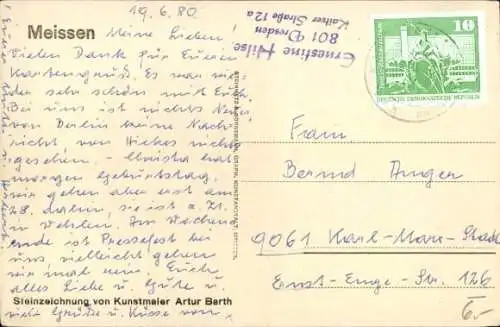 19.6.80
Meissen
Meine Lieben!
Vielen Dank für Euren
Kartengruß. Es war wie-
der sehr schön mit Euch.
Bei uns ist nichts Neues
von Berlin keine Nach-
richt, von Heikes nichts
gesehen. - Christa hat
morgen Geburtstag.
Wir gehen aber erst am
28. dahin, sie ist z. Zt.
in Wehlen. Im Wochen-
ende ist Pressefest bei
uns, vielleicht gehen
wir mal rein. Euch
alles Liebe u. Gute u.
viele Grüße u. Küsse von
Steinzeichnung von Kunstmaler Artur Barth
Ernestine Hilse
801 Dresden
Straße 12a
10
DEUTSCHE DEMOKRATISCHE REPUBLIK
Fam.
Bernd Anger
9061 Karl-Marx-Stadt
Ernst-Enge-Str. 126
6.-